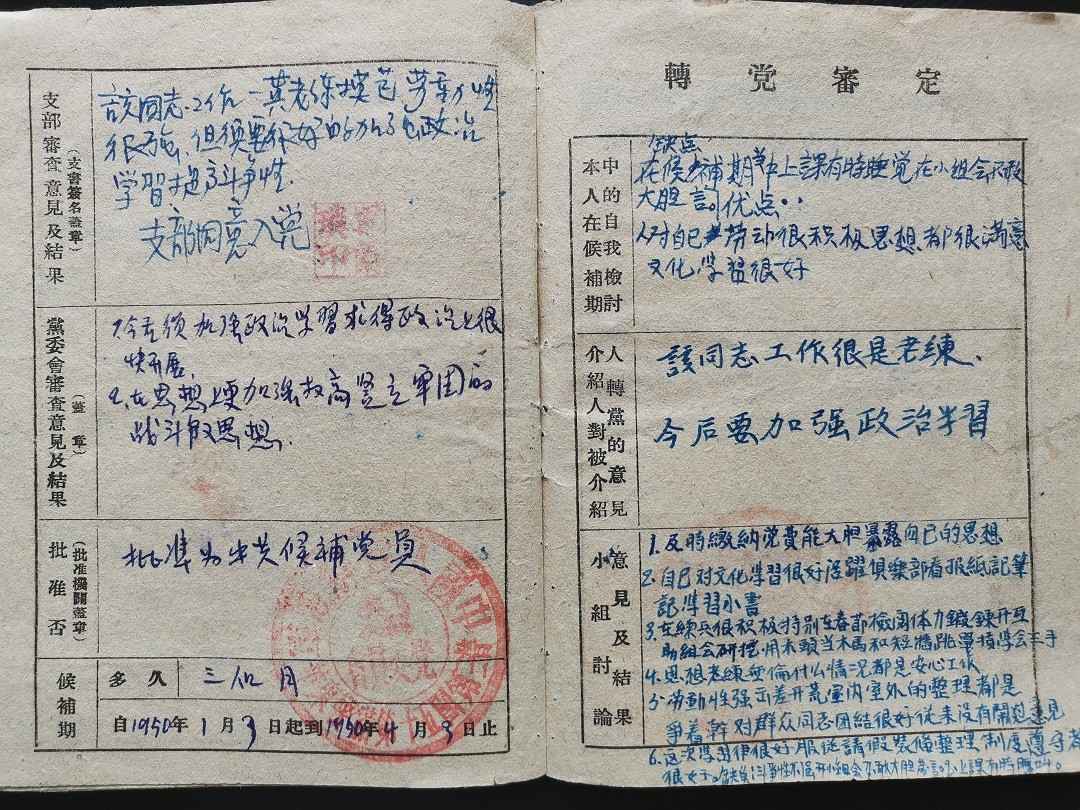 支部審查意見及結果
(支書簽名蓋章)
該同志工作一貫老練模范 劳动性
很強, 但須要很好的加強政治
学習提高斗争性.
支部同意入党
黨委會審查意見及結果
(蓋章)
1.今后须加强政治学習求得政治上很
快开展.
2.在思想上要加强提高竖立牢固的
战斗的思想.
批准否
(批准機關蓋章)
批准为中共候補党員
候補期
多久
三個月
自1950年1月3日起到1950年4月3日止
轉党審定
本人在候補期
中的自我檢討
缺点
在候补補期中上課有時睡覚在小組会不敢
大胆討 优点..
对自己劳动很积极思想都很满意
文化学習很好
介紹人對被介紹
人轉黨的意見
該同志工作很是老練.
今后要加强政治学習
小組討論
意見及結果
1.及時繳納党費能大胆暴露自己的思想
2.自己对文化学習很好活躍俱樂部看报紙記筆
記学習小書
3.在練兵很积极特别在春節檢閱体力鍛鍊开互
助組会研究用木頭当木馬和短牆跳單槓学会三手
4.思想老練無倫什么情况都是安心工作
5.劳動性强出差开荒室内室外的整理都是
争着幹对群众同志团結很好従来没有鬧过意見
6.这次学習很好服従請假裝備整理制度遵守者
很好。缺点斗争性不强小組会不敢大胆發言上課有時瞌睡。